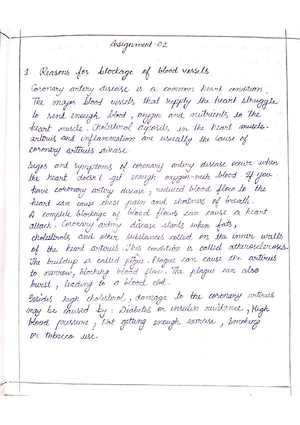 Assignment-02
1. Reasons for blockage of blood vessels
Coronary artery disease is a common heart condition.
The major blood vessels that supply the heart struggle
to send enough blood, oxygen and nutrients to the
heart muscle. Cholesterol deposits in the heart muscle.
arteries and inflammation are usually the cause of
coronary arteries disease.
Signs and symptoms of coronary artery disease occur when
the heart doesn't get enough oxygen-rich blood. If you
have coronary artery disease, reduced blood flow to the
heart can cause chest pain and shortness of breath.
A complete blockage of blood flows can cause a heart
attack. Coronary artery disease starts when fats,
cholesterols and other substances collect on the inner walls
of the heart arteries. This condition is called atherosclerosis.
The buildup is called plague. Plague can cause the arteries
to narrow, blocking blood flow. The plague can also
burst, leading to a blood clot.
Besides high cholesterol, damage to the coronary arteries
may be caused by: Diabetes or insulin resistance, High
blood pressure, Not getting enough exercise, Smoking
or tobacco use.